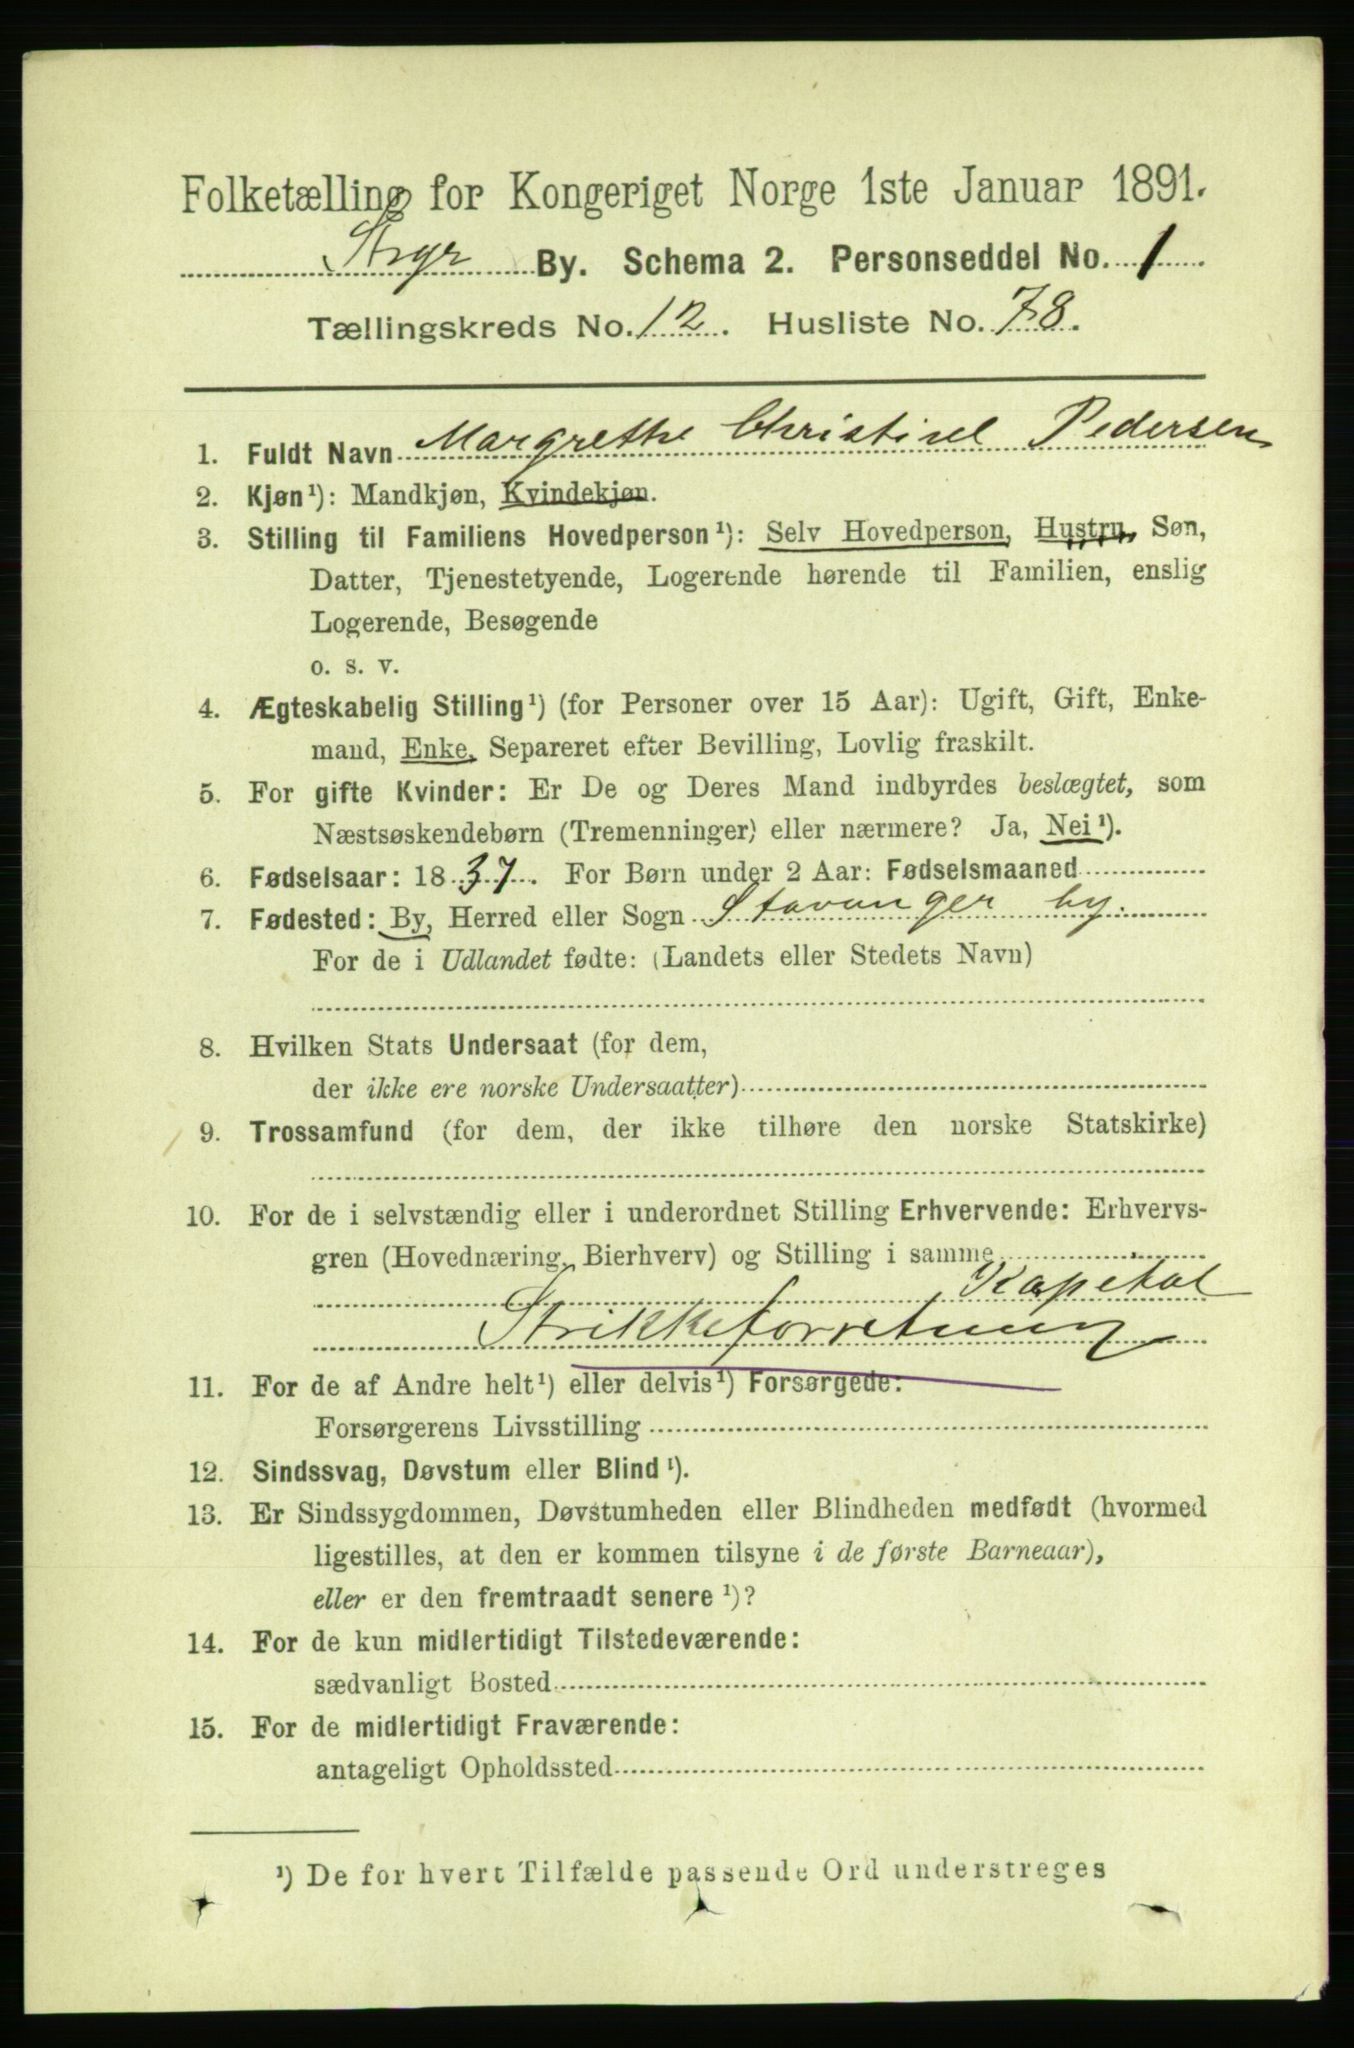 Folketælling for Kongeriget Norge 1ste Januar 1891.
Stgr By. Schema 2. Personseddel No. 1
Tællingskreds No. 12. Husliste No. 78.
1. Fuldt Navn Margrethe Christine Pedersen
2. Kjøn¹): Mandkjøn, Kvindekjøn.
3. Stilling til Familiens Hovedperson¹): Selv Hovedperson, Hustru, Søn,
Datter, Tjenestetyende, Logerende hørende til Familien, enslig
Logerende, Besøgende
o. s. v.
4. Ægteskabelig Stilling¹) (for Personer over 15 Aar): Ugift, Gift, Enke-
mand, Enke, Separeret efter Bevilling, Lovlig fraskilt.
5. For gifte Kvinder: Er De og Deres Mand indbyrdes beslægtet, som
Næstsøskendebørn (Tremenninger) eller nærmere? Ja, Nei¹).
6. Fødselsaar: 1837. For Børn under 2 Aar: Fødselsmaaned
7. Fødested: By, Herred eller Sogn Stavanger by.
For de i Udlandet fødte: (Landets eller Stedets Navn)
8. Hvilken Stats Undersaat (for dem,
der ikke ere norske Undersaatter)
9. Trossamfund (for dem, der ikke tilhøre den norske Statskirke)
10. For de i selvstændig eller i underordnet Stilling Erhvervende: Erhvervs-
gren (Hovednæring, Bierhverv) og Stilling i samme
Kapetal
Strikkeforretning
11. For de af Andre helt¹) eller delvis¹) Forsørgede:
Forsørgerens Livsstilling
12. Sindssvag, Døvstum eller Blind¹).
13. Er Sindssygdommen, Døvstumheden eller Blindheden medfødt (hvormed
ligestilles, at den er kommen tilsyne i de første Barneaar),
eller er den fremtraadt senere¹)?
14. For de kun midlertidigt Tilstedeværende:
sædvanligt Bosted
15. For de midlertidigt Fraværende:
antageligt Opholdssted
¹) De for hvert Tilfælde passende Ord understreges